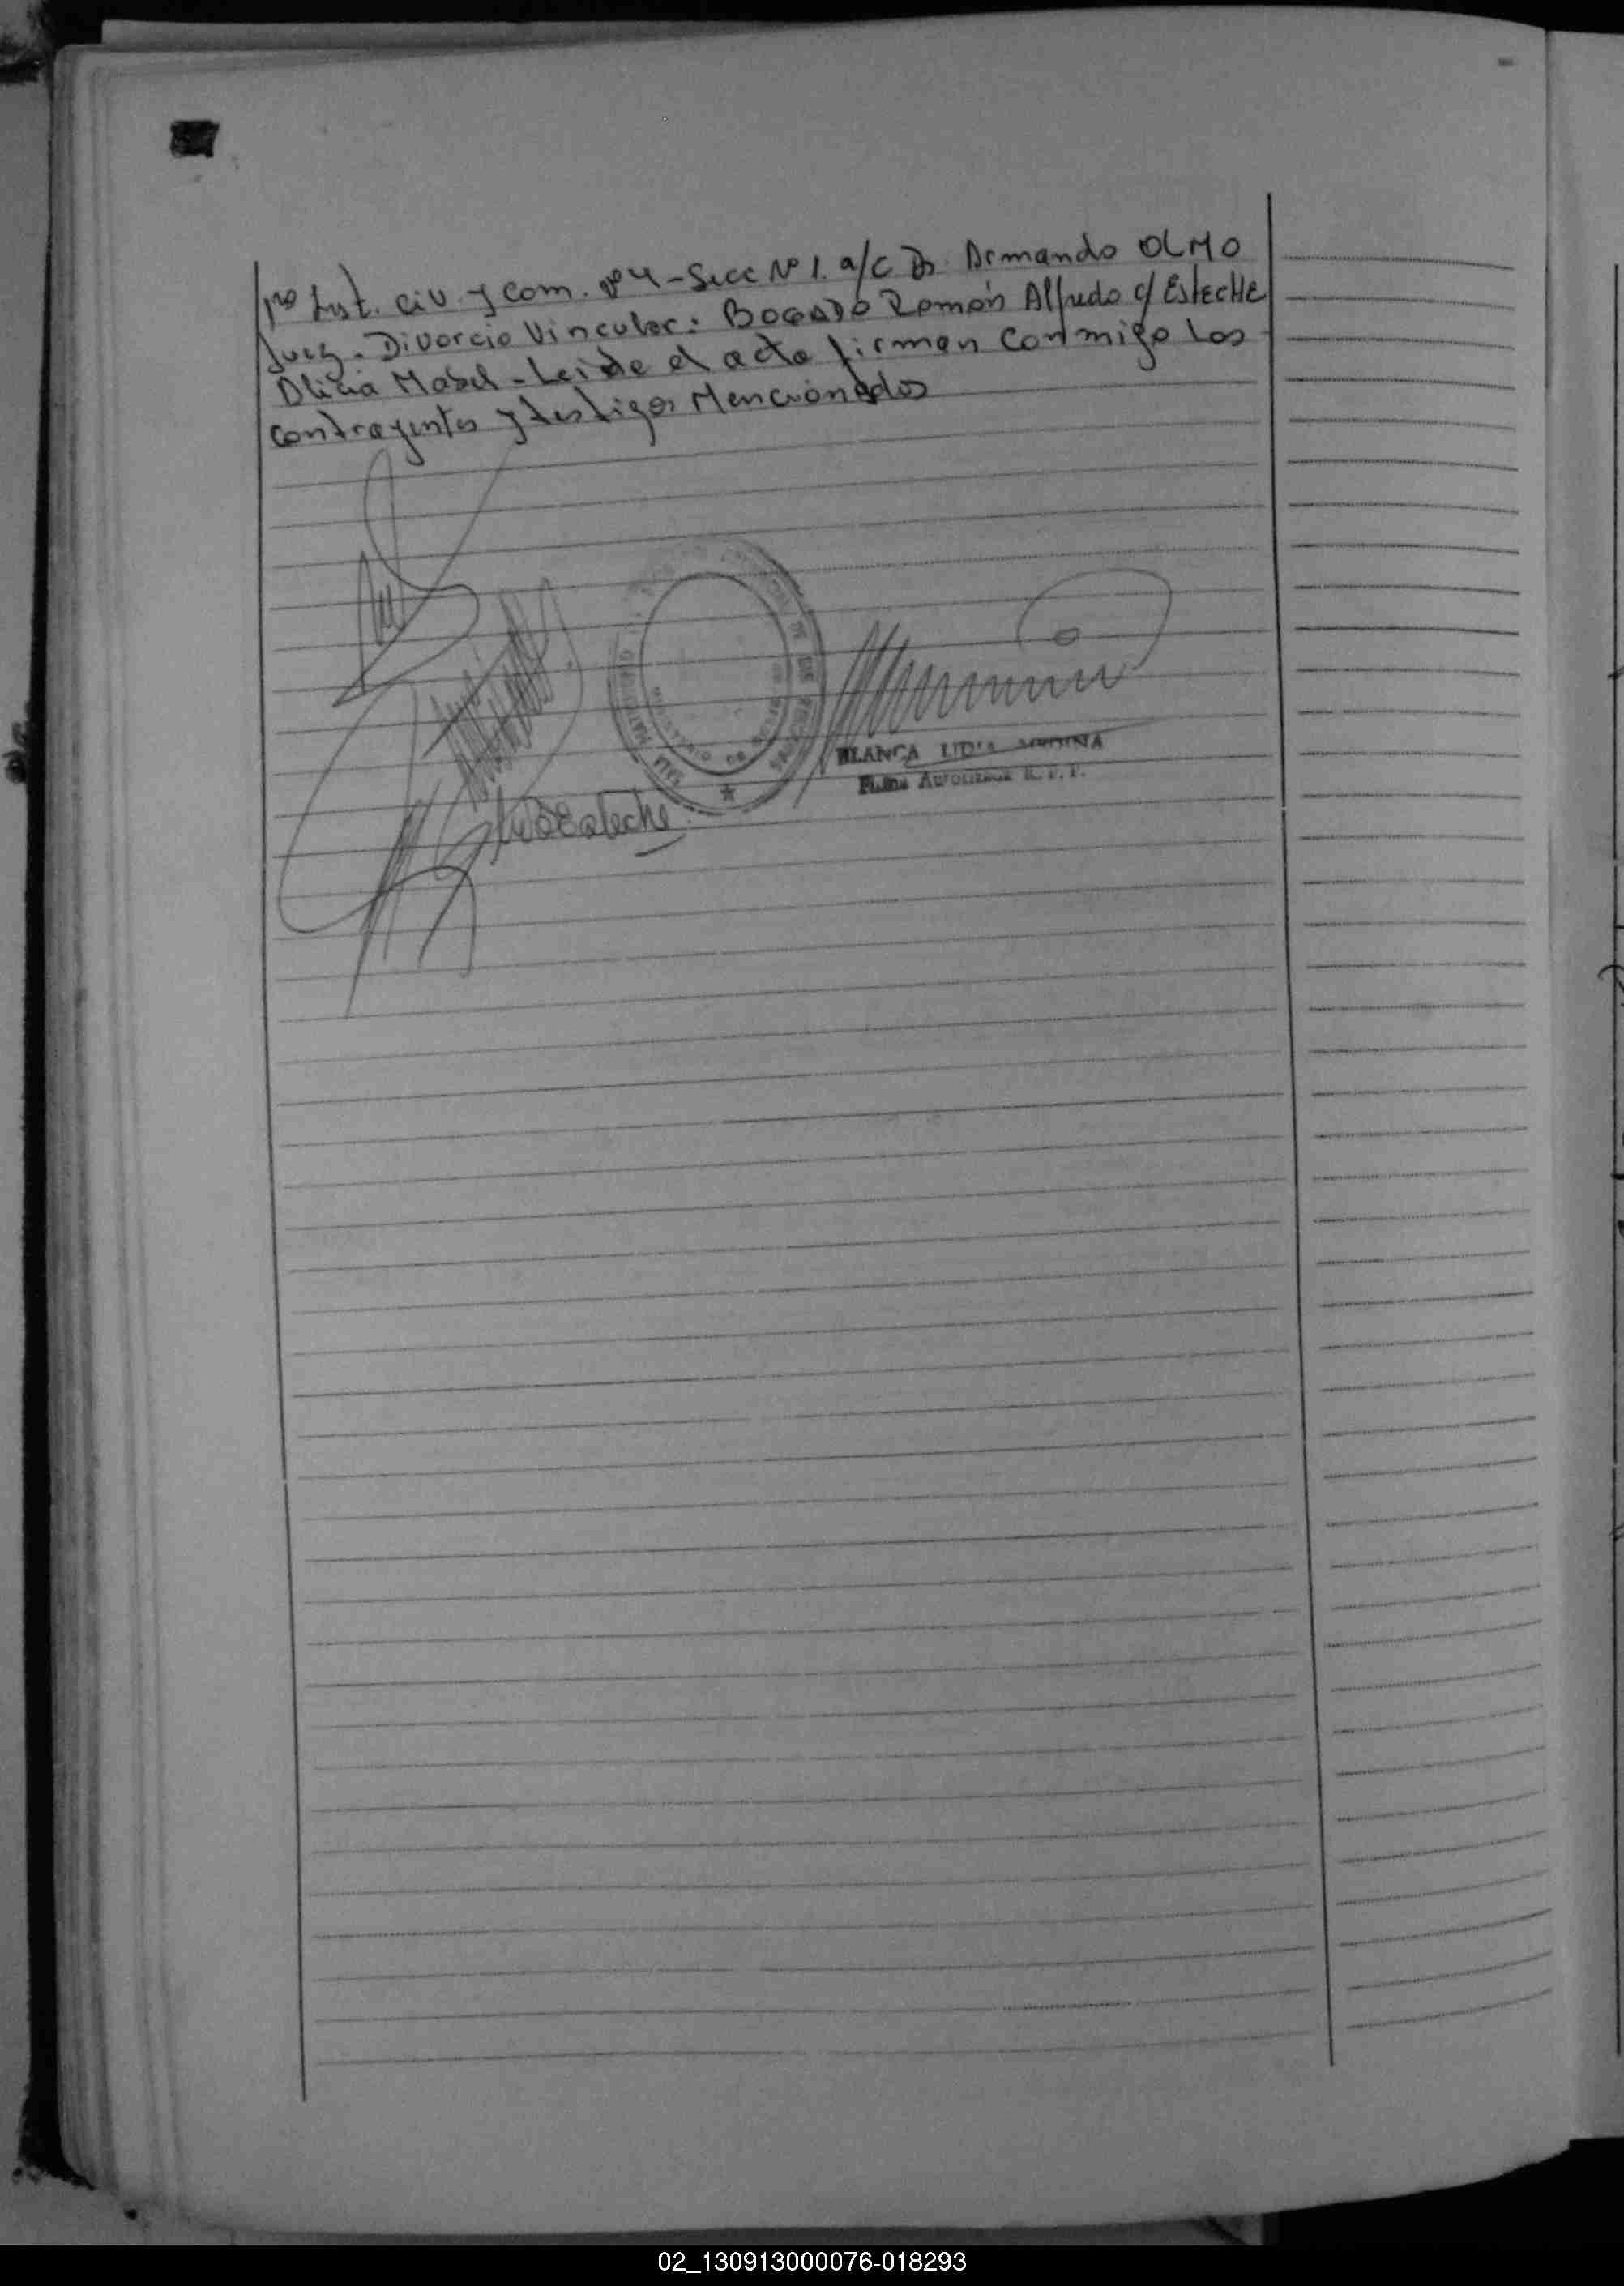 1ro Inst. Civ. y Com. Nº 4 - Secc Nº 1. a/c Dr. Armando OLMO
Juez. Divorcio Vincular: BOGADO Ramón Alfredo c/ ESTECHE
Alicia Mabel - Leida el acta firman conmigo los
contrayentes y testigos Mencionados
BLANCA LIDIA MEDINA
Firma Autorizada R. P. P.
Esteche
02_130913000076-018293